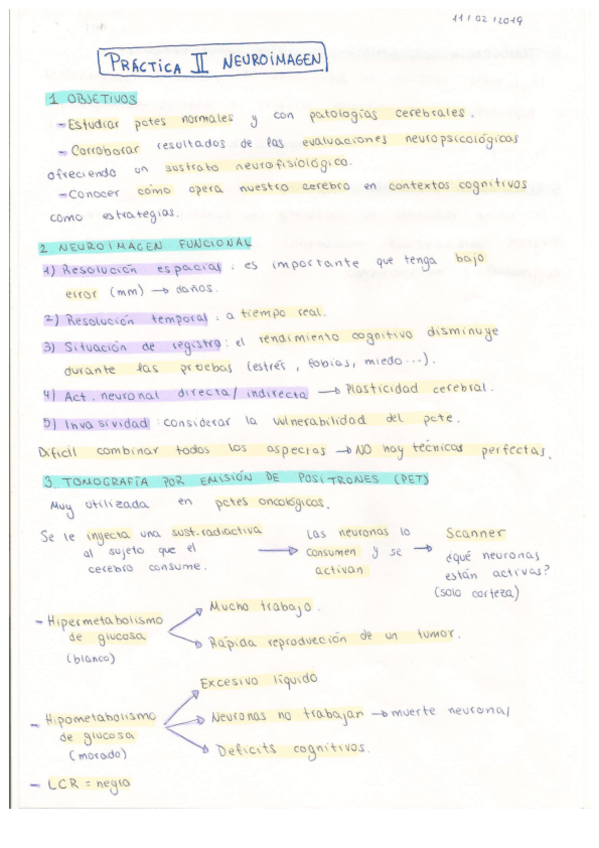 11/02/2019
PRÁCTICA II NEUROIMAGEN
1 OBJETIVOS
- Estudiar pctes normales y con patologías cerebrales.
- Corroborar resultados de las evaluaciones neuropsicológicas
ofreciendo un sustrato neurofisiológico.
- Conocer cómo opera nuestro cerebro en contextos cognitivos
como estrategias.
2 NEUROIMAGEN FUNCIONAL
1) Resolución espacial: es importante que tenga bajo
error (mm) → daños.
2) Resolución temporal: a tiempo real.
3) Situación de registro: el rendimiento cognitivo disminuye
durante las pruebas (estrés, fobias, miedo...).
4) Act. neuronal directa/indirecta → Plasticidad cerebral.
5) Invasividad: considerar la vulnerabilidad del pcte.
Difícil combinar todos los aspectos → NO hay técnicas perfectas.
3 TOMOGRAFÍA POR EMISIÓN DE POSITRONES (PET)
Muy utilizada en pctes oncológicos.
Se le inyecta una sust. radiactiva
al sujeto que el
cerebro consume.
→ Las neuronas lo
consumen y se
activan
→ Scanner
¿qué neuronas
están activas?
(solo corteza)
- Hipermetabolismo
de glucosa
(blanco)
Mucho trabajo.
Rápida reproducción de un tumor.
- Hipometabolismo
de glucosa
(morado)
Excesivo líquido
Neuronas no trabajan → muerte neuronal
Déficits cognitivos.
- LCR = negro